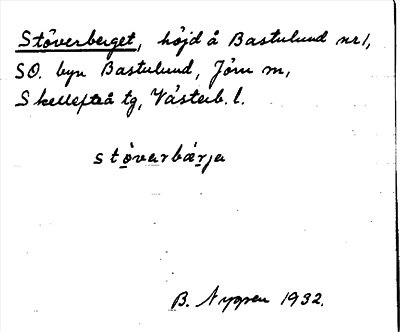 Stöverberget, höjd å Bastulund nr 1,
SO. byn Bastulund, Jörn sn,
Skellefteå tg, Västerb. l.
stövarbærja
B. Nygren 1932.